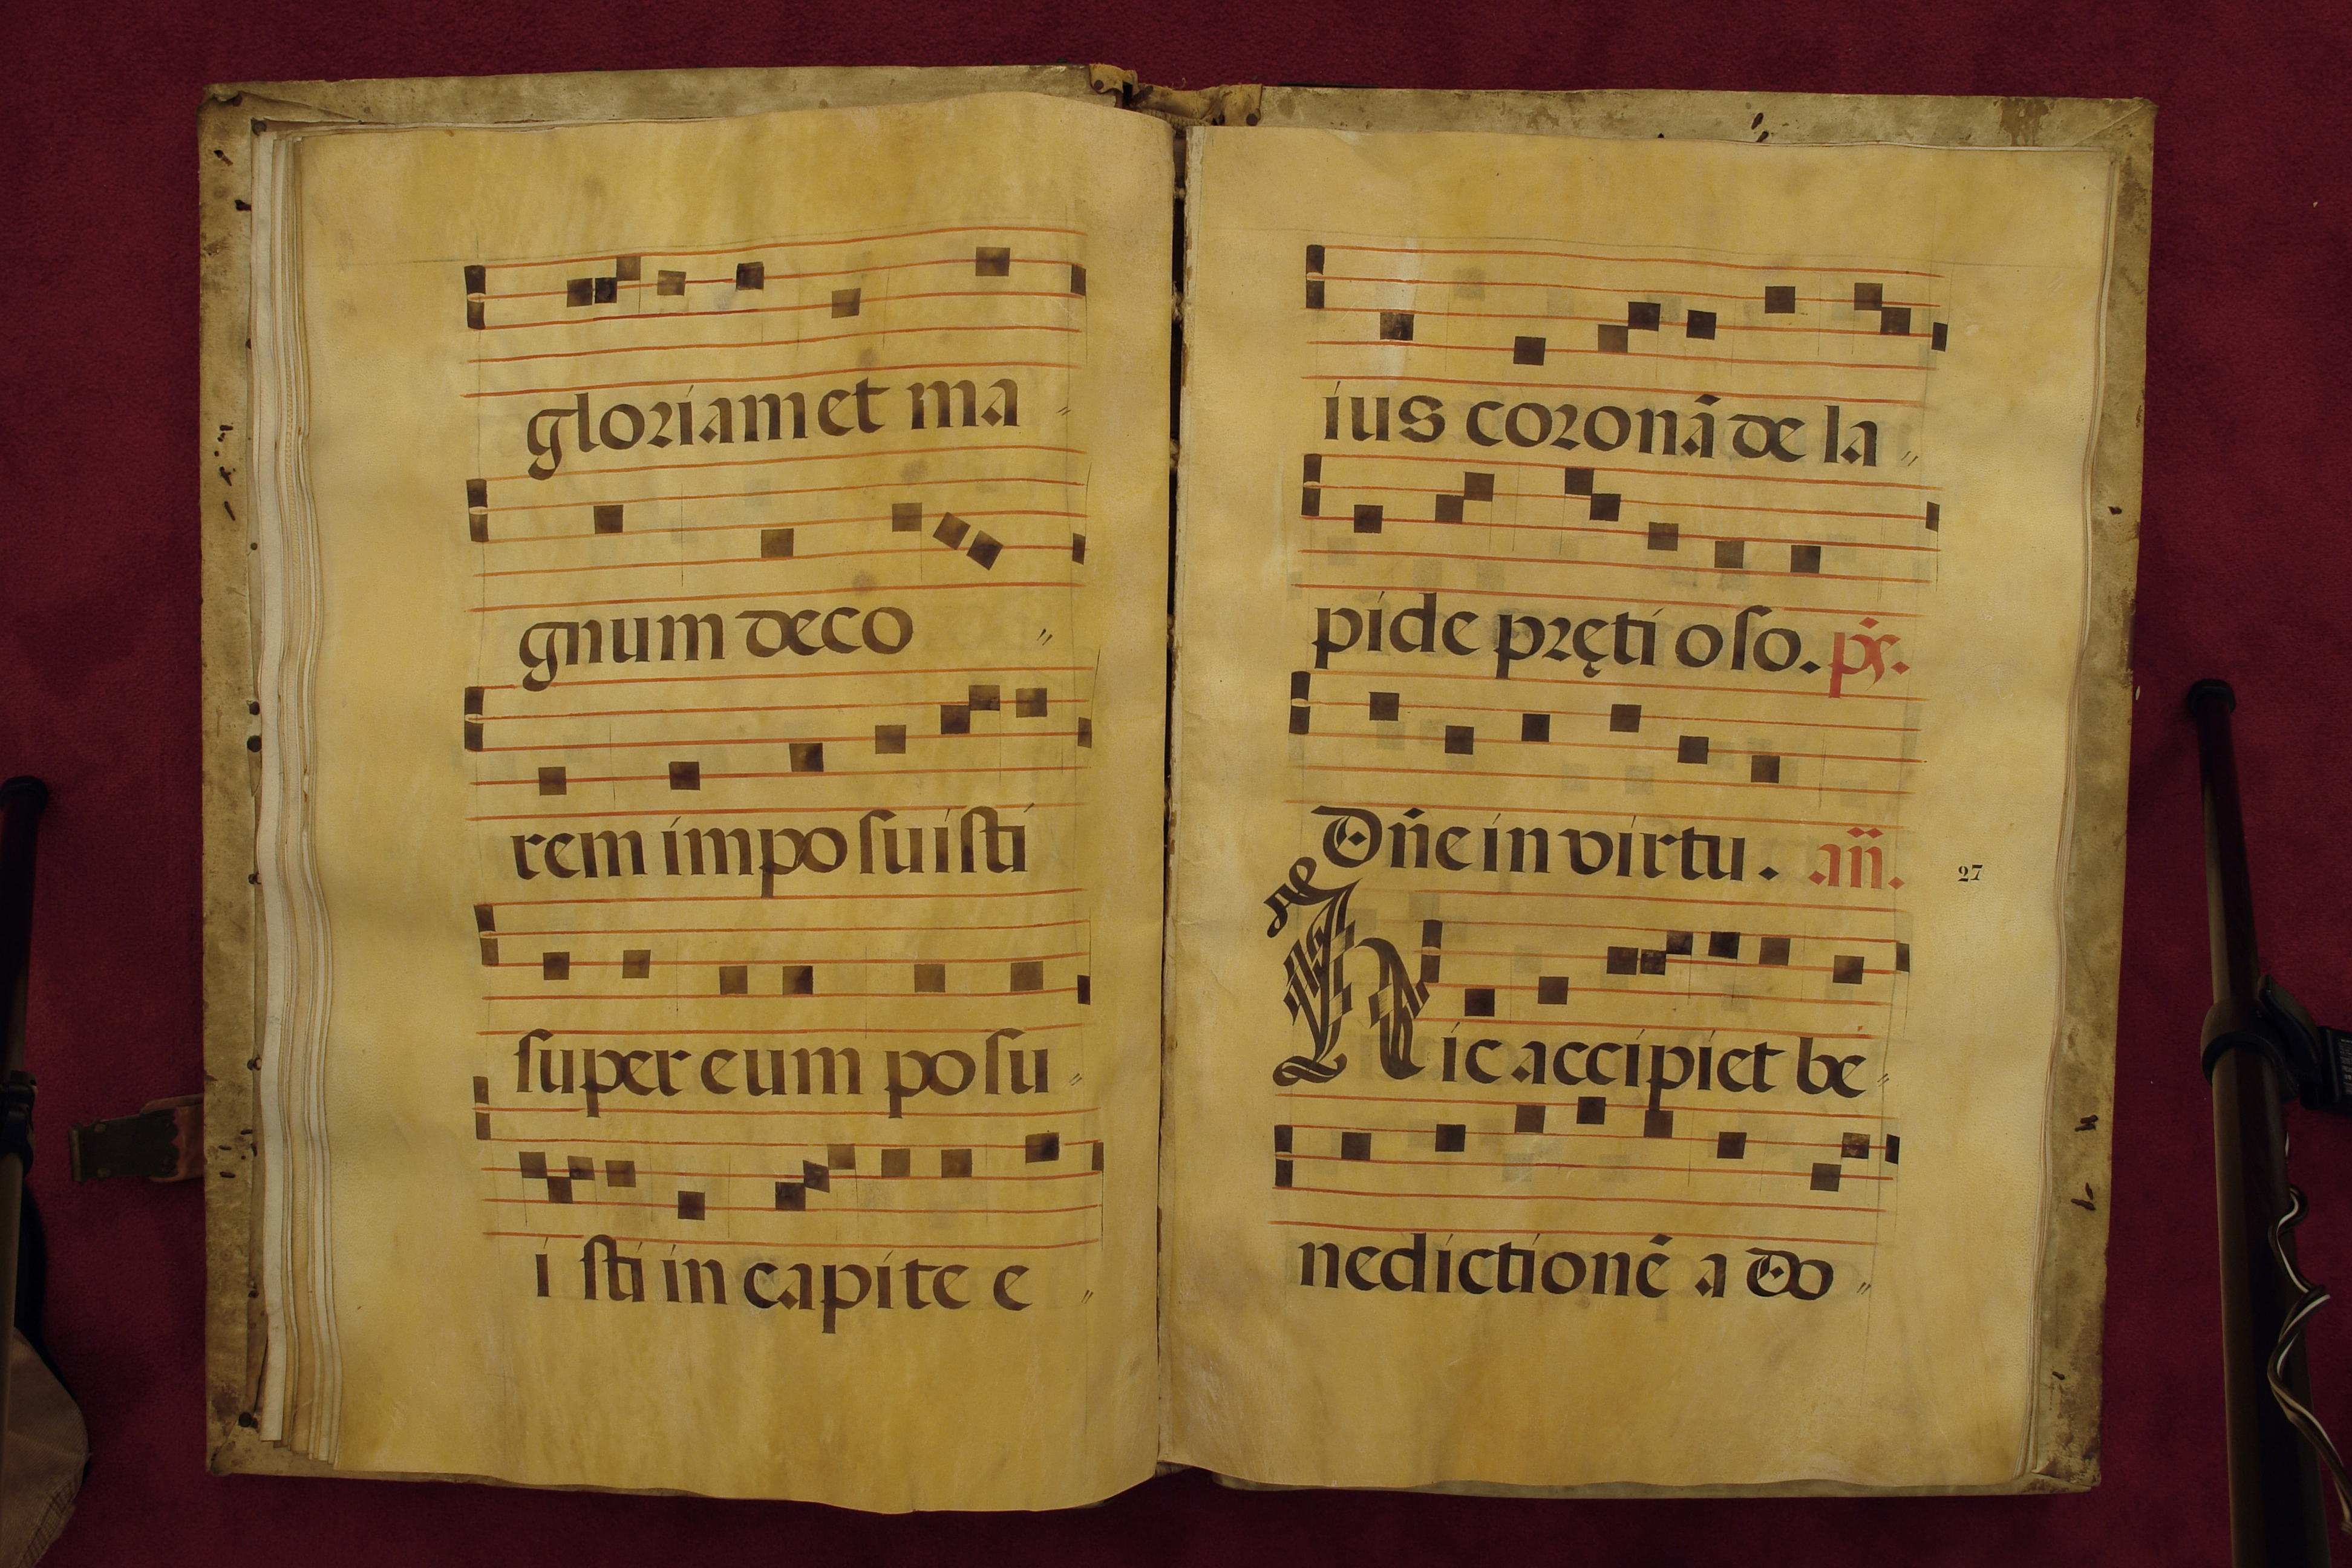 gloriam et ma
gnum deco
rem imposuisti
super eum posu
isti in capite e
ius coronã de la
pide pręti oso. ps.
Dñe in virtu. añ.
27
Hic accipiet be
nedictionẽ a do